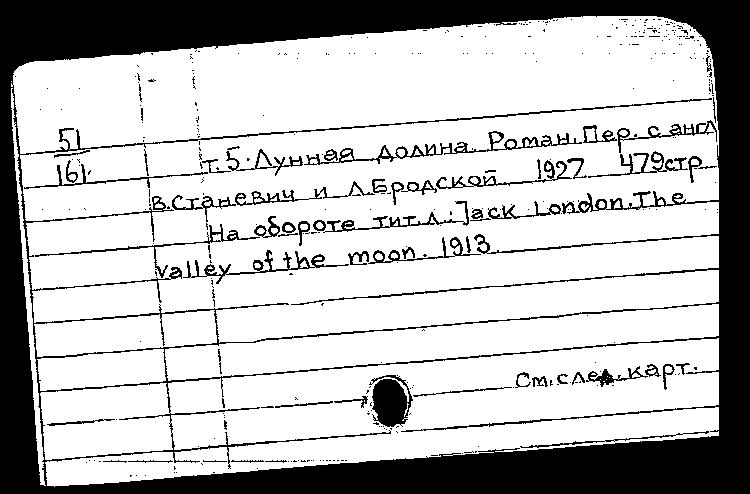 51
161.
т. 5. Лунная долина. Роман. Пер. с англ
В. Станевич и Л. Бродской. 1927 479 стр
На обороте тит. л.: Jack London. The
valley of the moon. 1913.
См. след. карт.